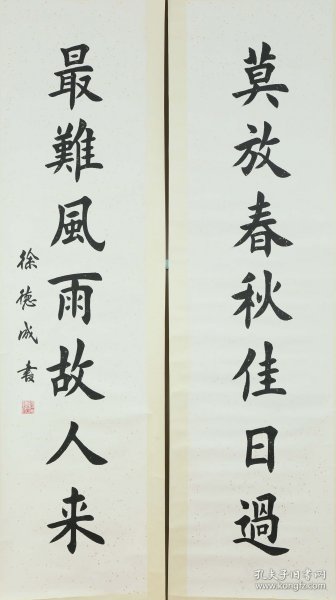 莫放春秋佳日過
最難風雨故人来
徐德成書
孔夫子旧书网
www.kongfz.com